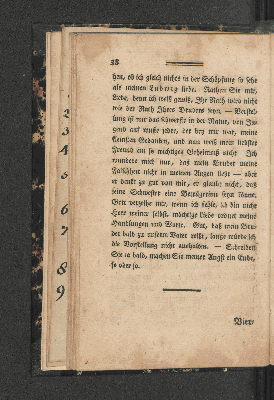 38
han, ob ich gleich nichts in der Schöpfung so sehr
als meinen Ludewig liebe. Rathen Sie mir,
Liebe, denn ich weiß gewiß, Ihr Rath wird nicht
wie der Rath Ihres Bruders seyn. — Verstel-
lung ist mir das schwerste in der Natur, von Ju-
gend auf wußte jeder, der bey mir war, meine
kleinsten Gedanken, und nun muß mein liebster
Freund ein so wichtiges Geheimniß nicht! Ich
wundere mich nur, daß mein Bruder meine
Falschheit nicht in meinen Augen liest — aber
er denkt zu gut von mir, er glaubt nicht, daß
seine Schwester eine Betrügerinn seyn kann.
Gott verzeihe mir, wenn ich fehle, ich bin nicht
Herr meiner selbst, mächtige Liebe ordnet meine
Handlungen und Worte. Gut, daß mein Bru-
der bald zu unserm Vater reist, lange würde ich
die Vorstellung nicht aushalten. — Schreiben
Sie ja bald, machen Sie meiner Angst ein Ende,
so oder so.
Vier-
2
3
4
5
6
7
8
9